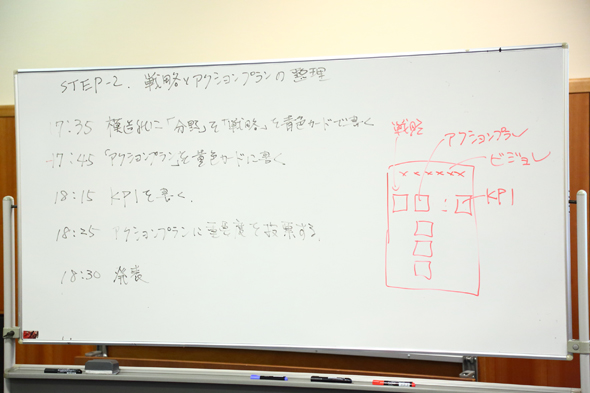 STEP-2. 戦略とアクションプランの整理
17:35 模造紙に「分野」を「戦略」を青色カードで書く
17:45 「アクションプラン」を黄色カードに書く
18:15 KPIを書く.
18:25 アクションプランに重要度を投票する.
18:30 発表
戦略
アクションプラン
ビジョン
××××××
KPI